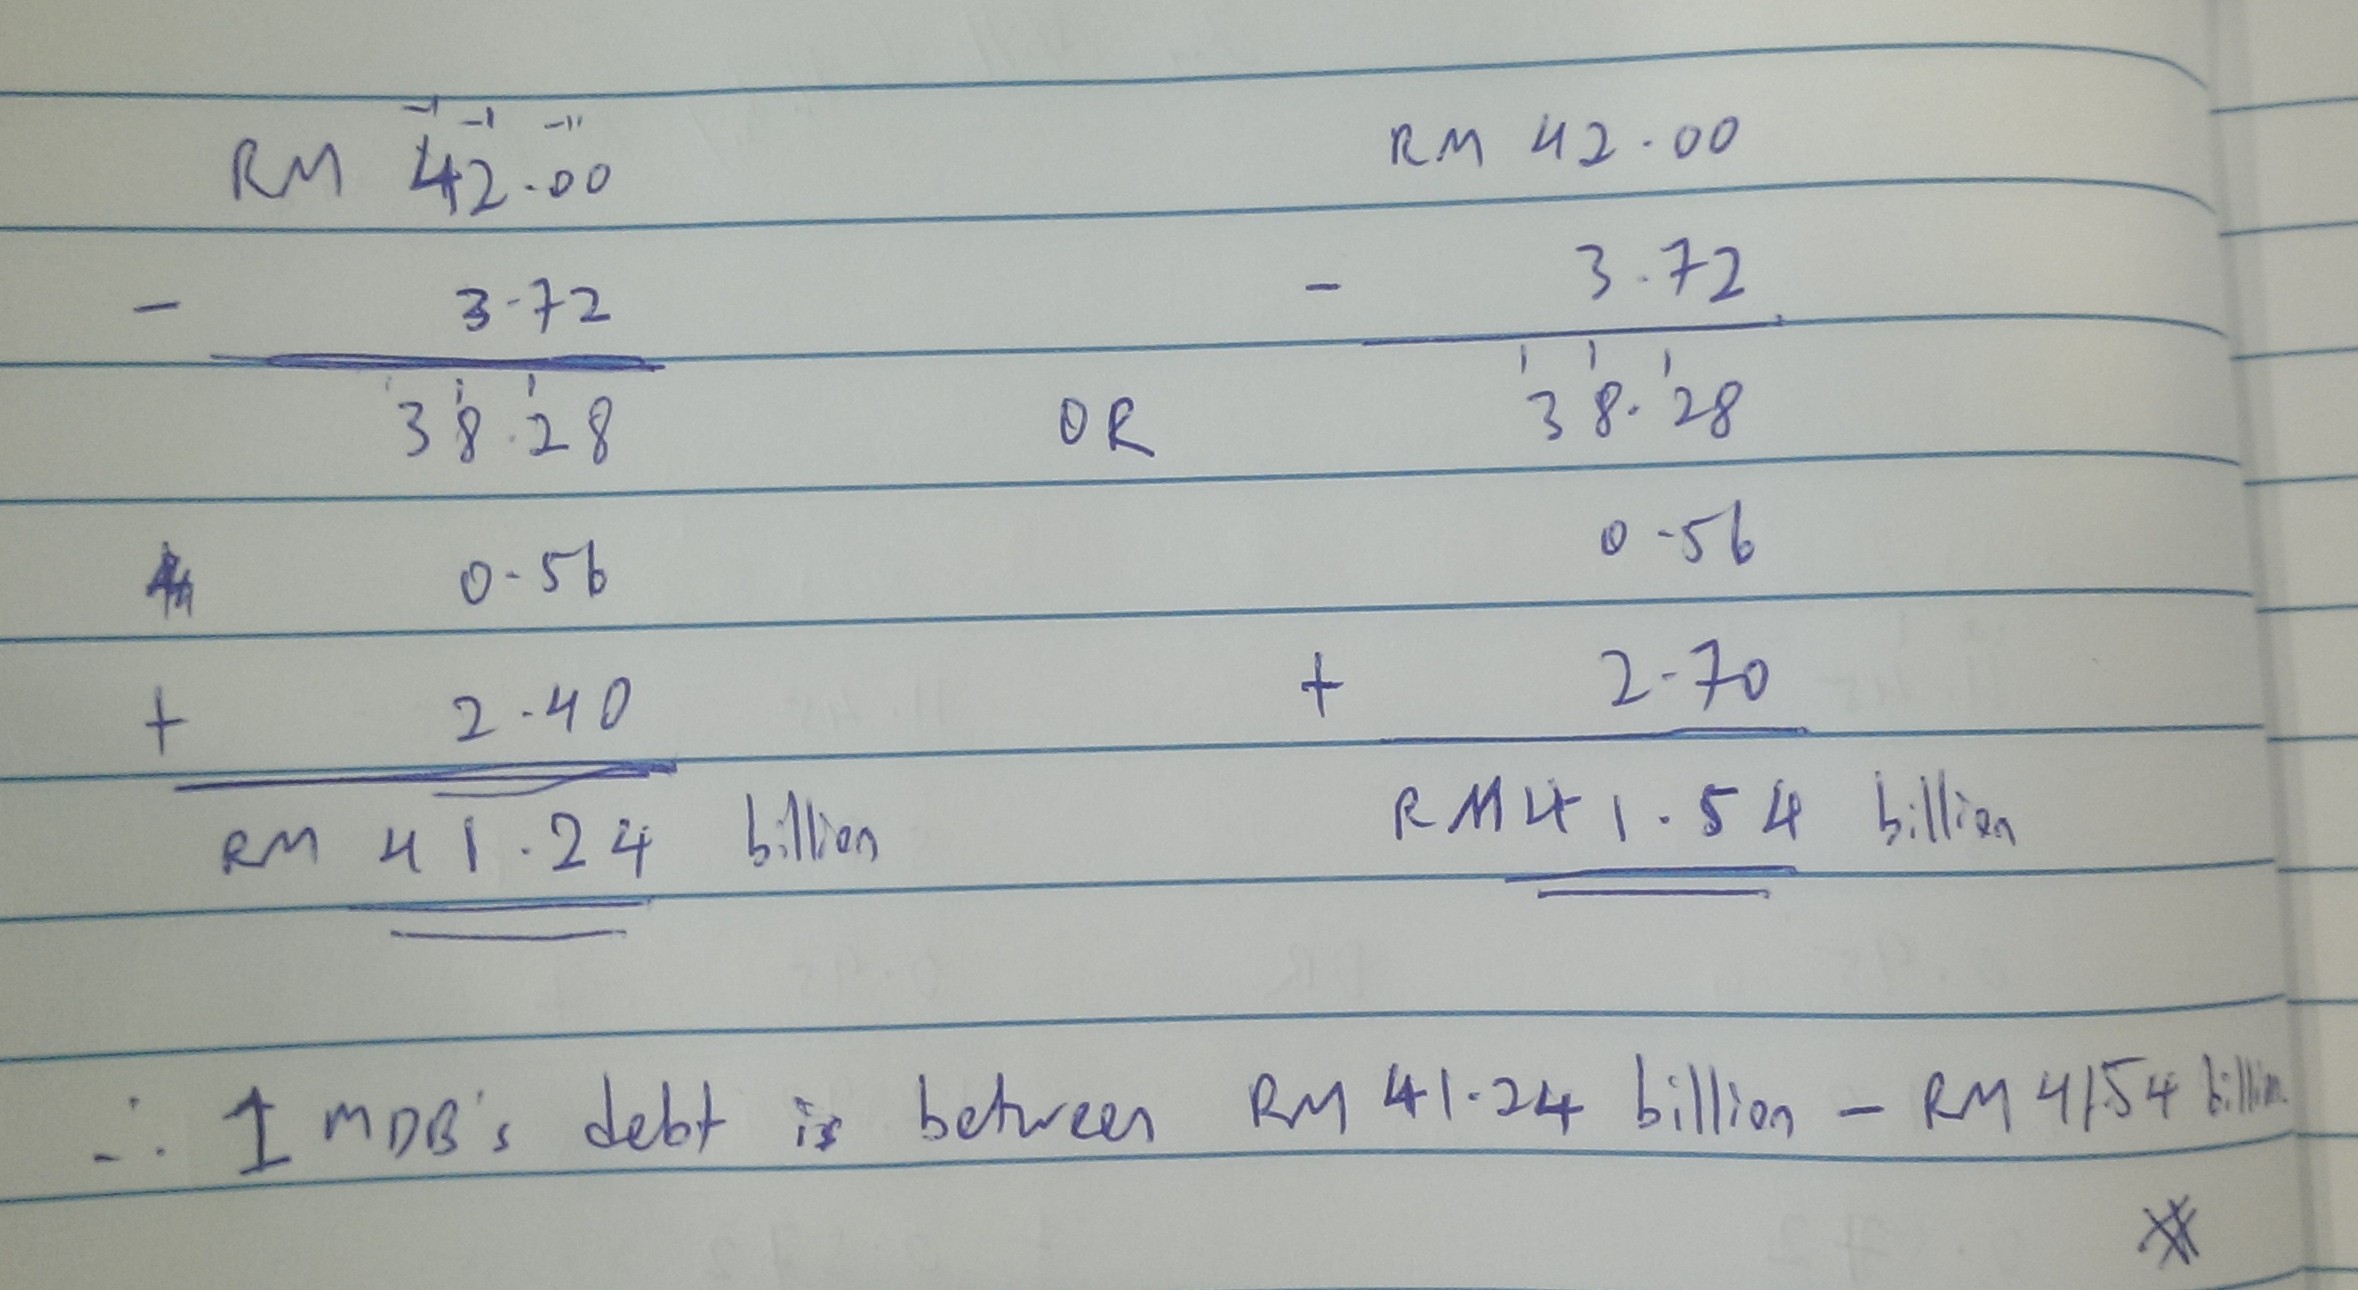 RM 42.00
- 3.72
38.28
0.56
+ 2.40
RM 41.24 billion
OR
RM 42.00
- 3.72
38.28
0.56
+ 2.70
RM 41.54 billion
∴ 1 MDB's debt is between RM 41.24 billion – RM 41.54 billion